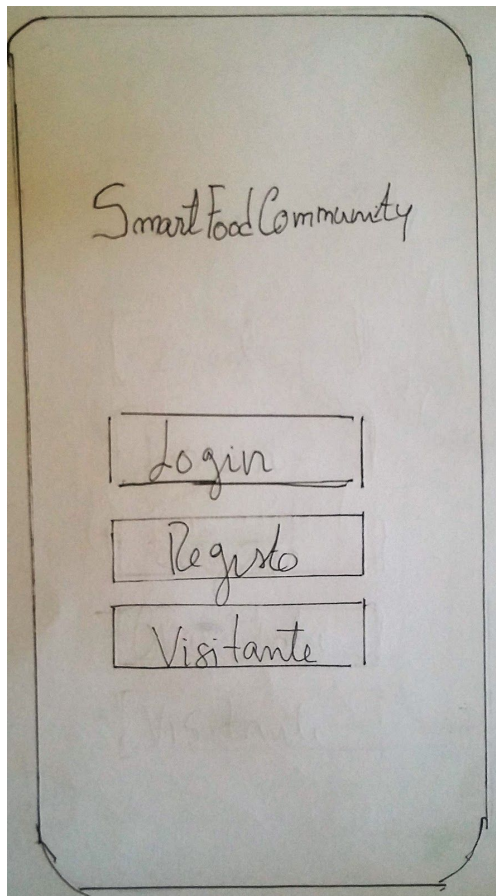 SmartFoodCommunity
Login
Registo
Visitante
Visitante